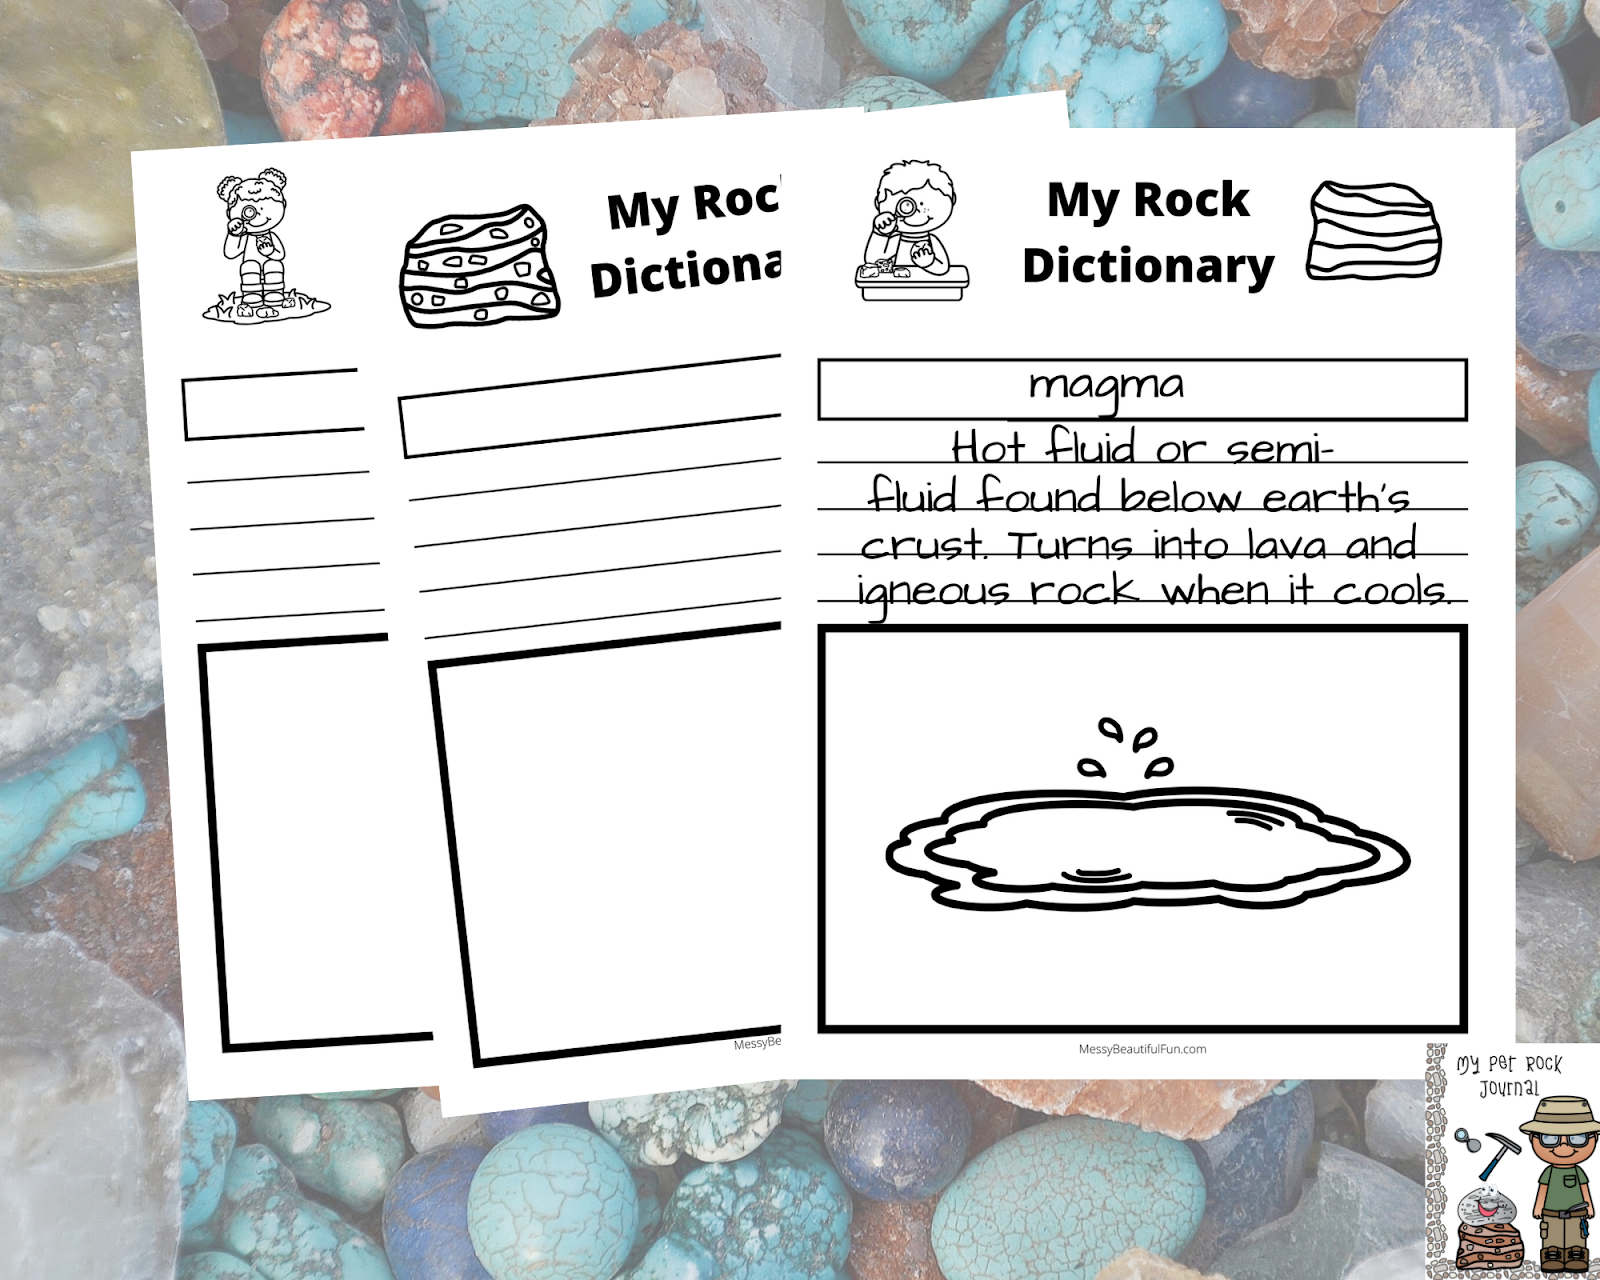 My Roc
Dictiona
MessyBe
My Rock
Dictionary
magma
Hot fluid or semi-
fluid found below earth's
crust. Turns into lava and
igneous rock when it cools.
MessyBeautifulFun.com
My Pet Rock
Journal